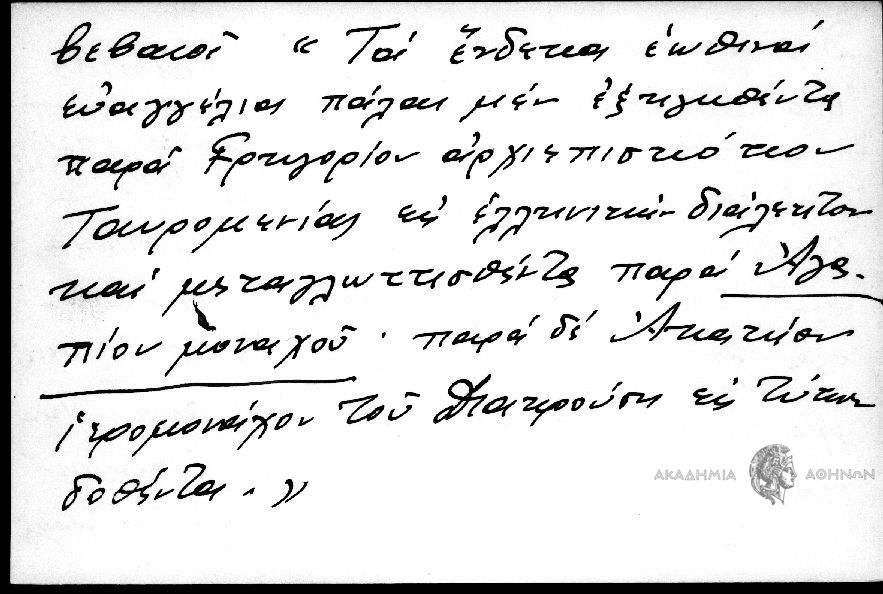 βεβαιοῖ « Τά ἕνδεκα ἑωθινά
εὐαγγέλια πάλαι μέν ἐξηγηθέντα
παρά Γρηγορίου ἀρχιεπισκόπου
Ταυρομενίας εἰς ἑλληνικήν διάλεκτον
καί μεταγλωττισθέντα παρά Ἀγα-
πίου μοναχοῦ · παρά δέ Ἀκακίου
ἱερομονάχου τοῦ Διακρούση εἰς τύπον
δοθέντα . »
ΑΚΑΔΗΜΙΑ ΑΘΗΝΩΝ